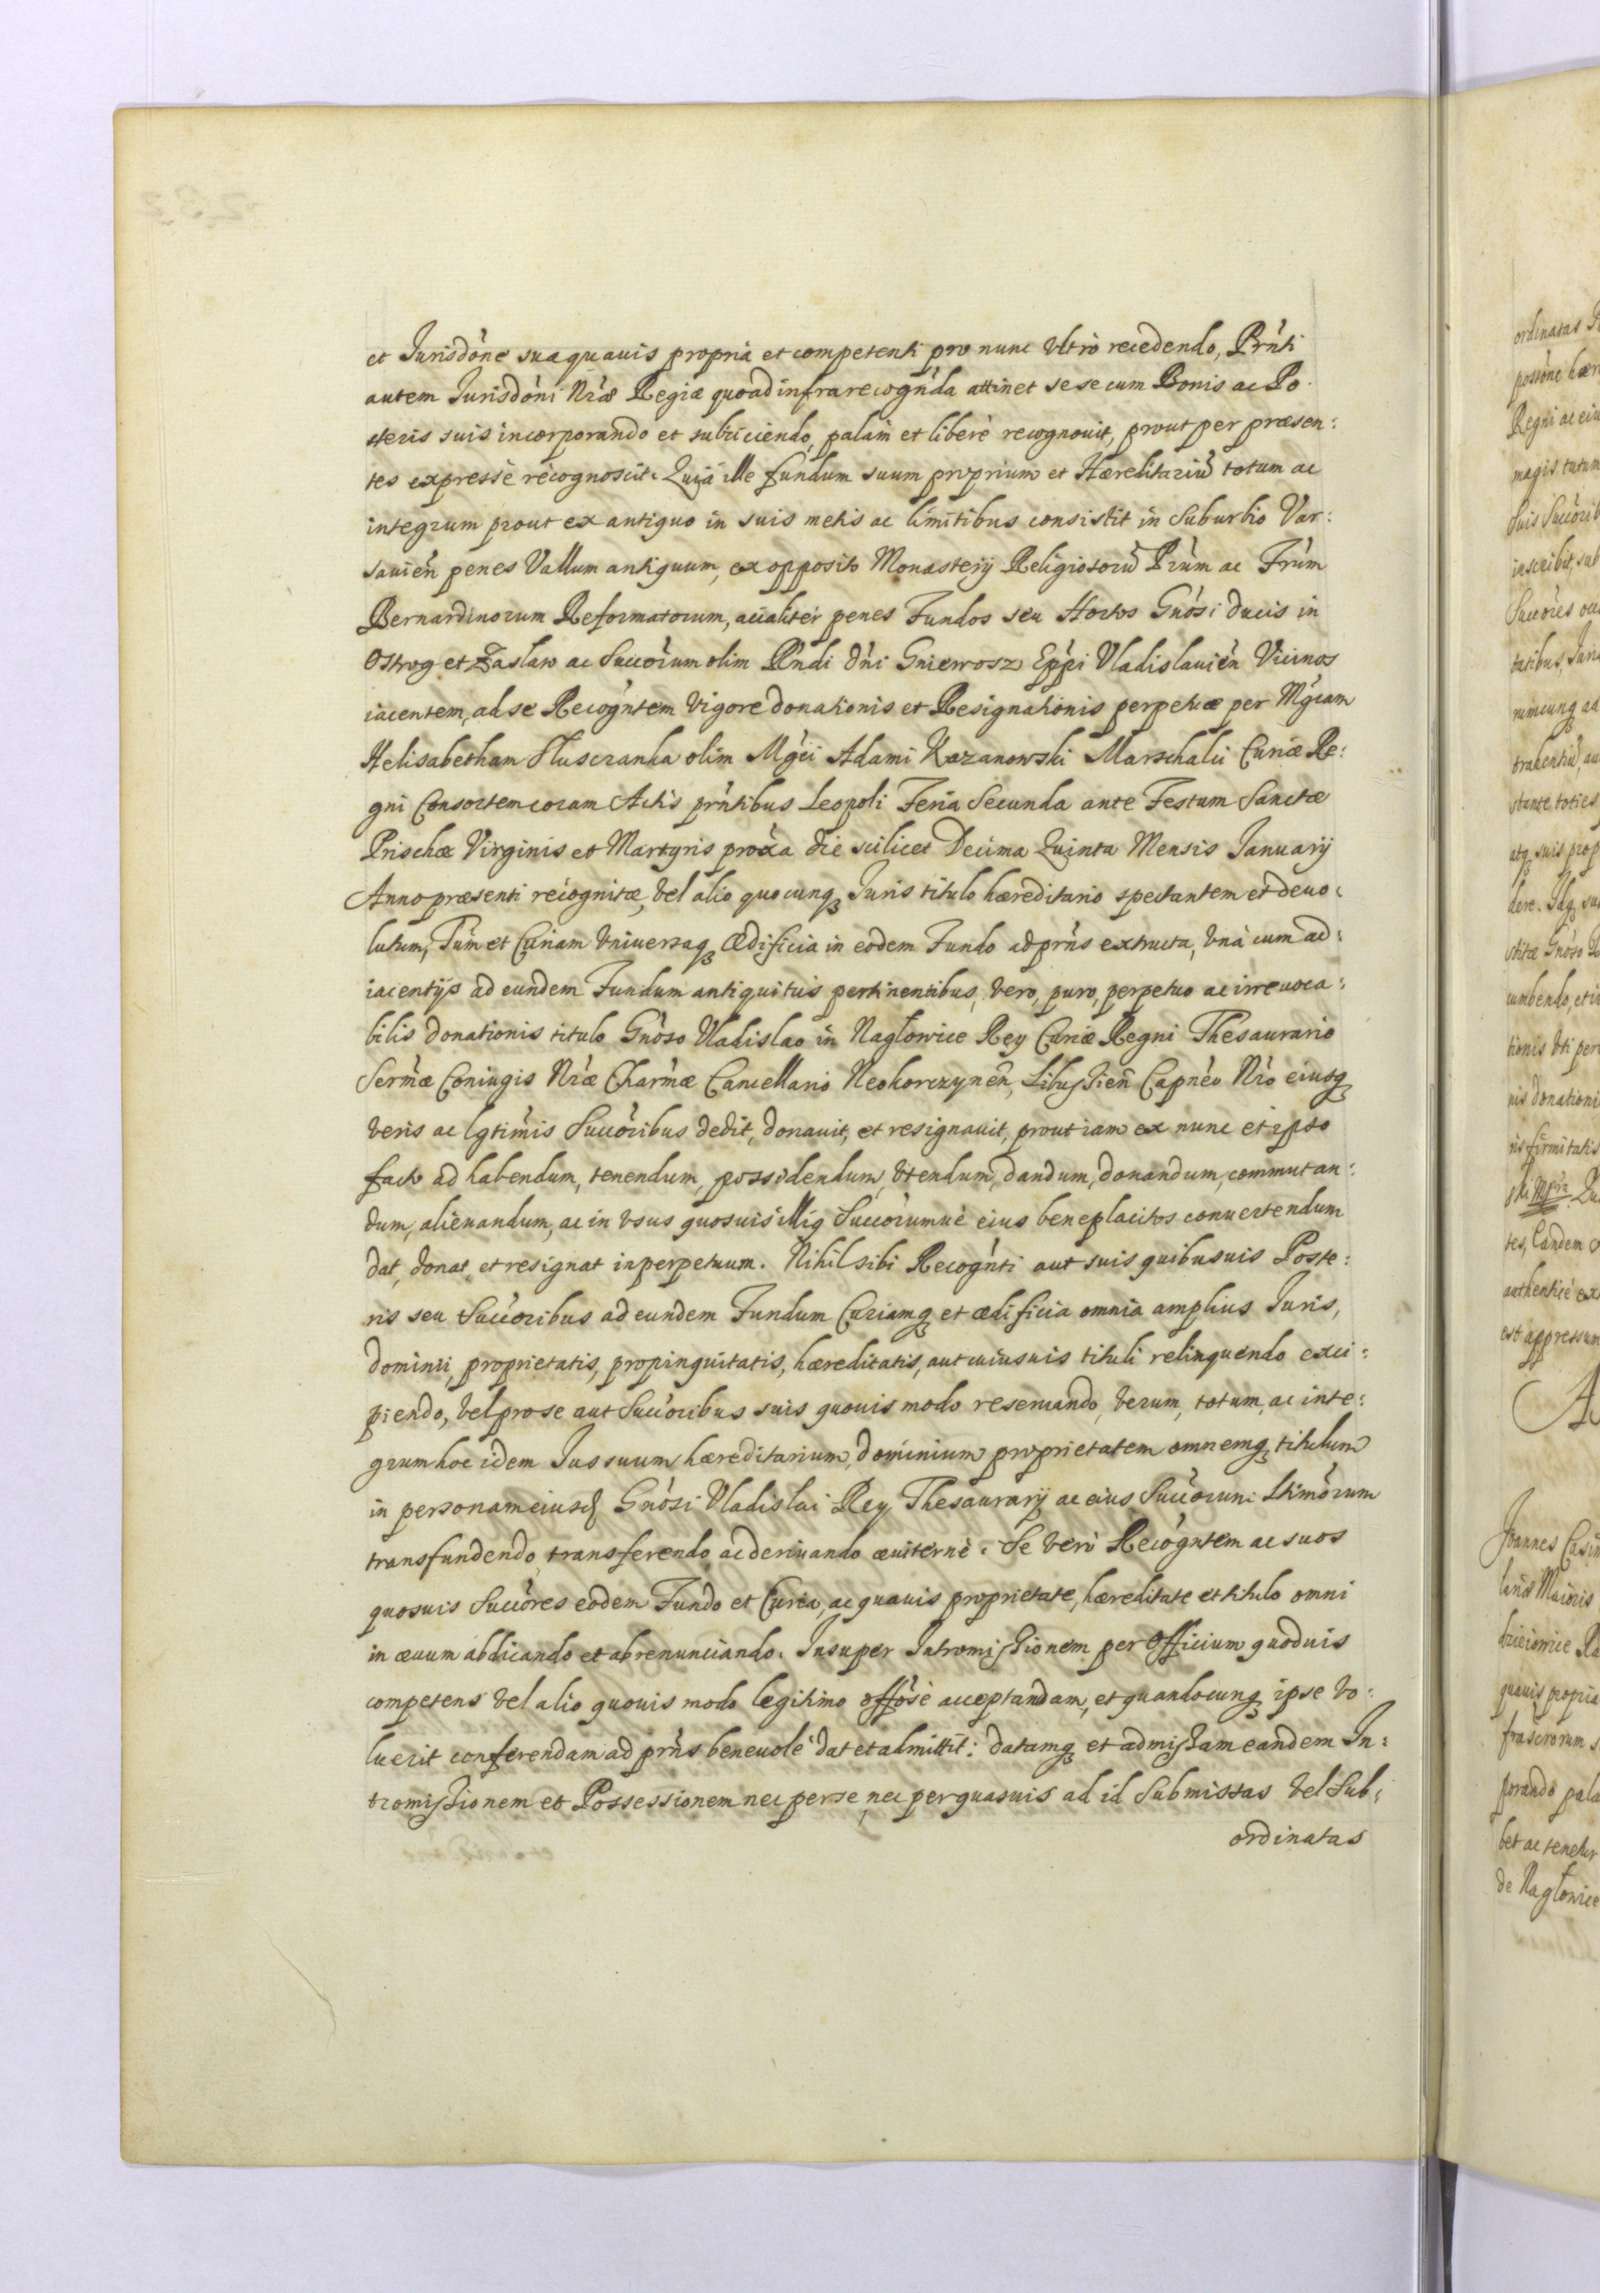 et Jurisdone sua quauis propria et competenti pro nunc vltro recedendo, Prnti
autem Jurisdoni Nrae Regiae quoad infrarecognda attinet sese cum Bonis ac Po:
steris suis incorporando et subiiciendo, palam et libere recognouit, prout per praesen:
tes expresse recognoscit. Quia ille fundum suum proprium et Haereditariu totum ac
integrum prout ex antiquo in suis metis ac limitibus consistit in Suburbio Var:
sauien penes Vallum antiquum, ex opposito Monasterij Religiosoru Prum ac Frum
Bernardinorum Reformatorum, acialiter penes Fundos seu Hortos Gnosi ducis in
Ostrog et Zaslaw ac Succorum olim Rndi Dni Gniewosz Eppi Vladislauien Vicinos
iacentem, ad se Recogntem vigore donationis et Resignationis perpetuae per Mgcam
Helisabetham Sluszanka olim Mgci Adami Kazanowski Marschalci Curiae Re:
gni Consortem coram Actis prntibus Leopoli Feria Secunda ante Festum Sanctae
Prischae Virginis et Martyris proxa die scilicet Decima Quinta Mensis Januarij
Anno praesenti recognitae, vel alio quocunq Juris titulo haereditario spectantem et deuo:
lutum, Tum et Curiam vniversaq Aedificia in eodem Fundo ad prns extructa, vna cum ad:
iacentijs ad eundem Fundum antiquitus pertinentibus, vero, puro, perpetuo ac irreuoca:
bilis donationis titulo Gnoso Vladislao in Nagłowice Rey Curiae Regni Thesaurario
Sermae Coniugis Nrae Charmae Cancellario Neokorczynen, Libusien Capneo Nro eiusq
veris ac lgtimis Succoribus dedit, donauit, et resignauit, prout iam ex nunc et ipso
facto ad habendum, tenendum, possidendum, vtendum, dandum, donandum, commutan:
dum, alienandum, ac in vsus quosuis illiq Succorumue eius beneplacitos conuertendum
dat, donat, et resignat in perpetuum. Nihil sibi Recognti aut suis quibusuis Poste:
ris seu Succoribus ad eundem Fundum Curiamq et aedificia omnia amplius Juris,
dominii, proprietatis, propinquitatis, haereditatis, aut cuiusuis tituli relinquendo exci:
piendo, vel pro se aut Succoribus suis quouis modo reseruando, verum, totum, ac inte:
grum hoc idem Jus suum haereditarium, dominium proprietatem omnemq titulum
in personam eiusd Gnosi Vladislai Rey Thesaurarij ac eius Succorum ltimorum
transfundendo, transferendo ac deriuando aeuiterne. Se vero Recogntem ac suos
quosuis Succores eodem Fundo et Curia, ac quauis proprietate, haereditate et titulo omni
in aeuum abdicando et abrenunciando. Insuper Intromissionem per Officium quoduis
competens vel alio quouis modo legitimo offose acceptandam, et quandocunq ipse vo:
luerit conferendam ad prns beneuole dat et admittit: datamq et admissam eandem In:
tromissionem et Possessionem nec per se, nec per quasuis ad id Submissas vel Sub:
ordinatas